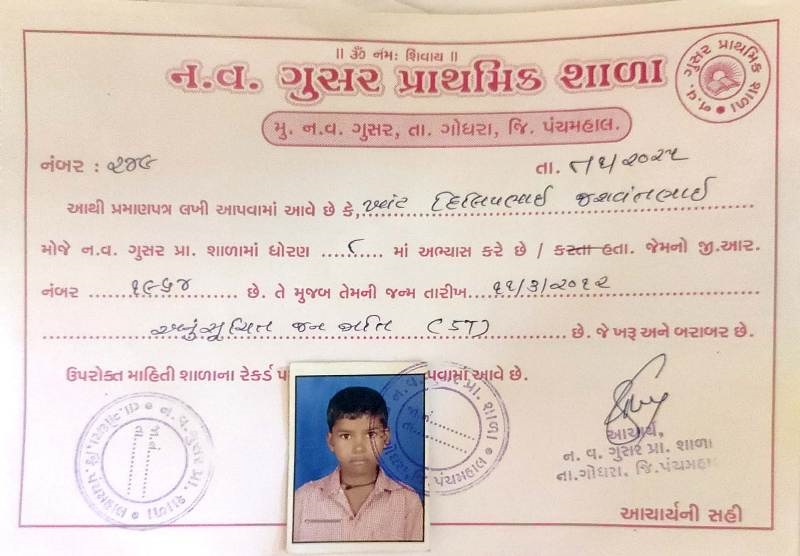 || ૐ નમઃ શિવાય ||
ન.વ. ગુસર પ્રાથમિક શાળા
ન.વ. ગુસર પ્રાથમિક શાળા
મુ. ન.વ. ગુસર, તા. ગોધરા, જિ. પંચમહાલ.
નંબર : ૨૪૯ તા.
આથી પ્રમાણપત્ર લખી આપવામાં આવે છે કે, ખાંટ દિલિપભાઈ જશવંતભાઈ
મોજે ન.વ. ગુસર પ્રા. શાળામાં ધોરણ ૮ માં અભ્યાસ કરે છે / કરતા હતા. જેમનો જી.આર.
નંબર ૧૯૬૪ છે. તે મુજબ તેમની જન્મ તારીખ ૧૧/૩/૨૦૧૨
અનુસૂચિત જન જાતિ (ST) છે. જે ખરૂ અને બરાબર છે.
ઉપરોક્ત માહિતી શાળાના રેકર્ડ પ વામાં આવે છે.
ન.વ. ગુસર પ્રા. શાળા
જા.નં.
તા.
ન.વ. ગુસર પ્રા. શાળા
તા.ગોધરા, જિ. પંચમહાલ
જા.નં.
તા.
આચાર્ય,
ન. વ. ગુસર પ્રા. શાળા
તા.ગોધરા. જિ.પંચમહાલ
આચાર્યની સહી